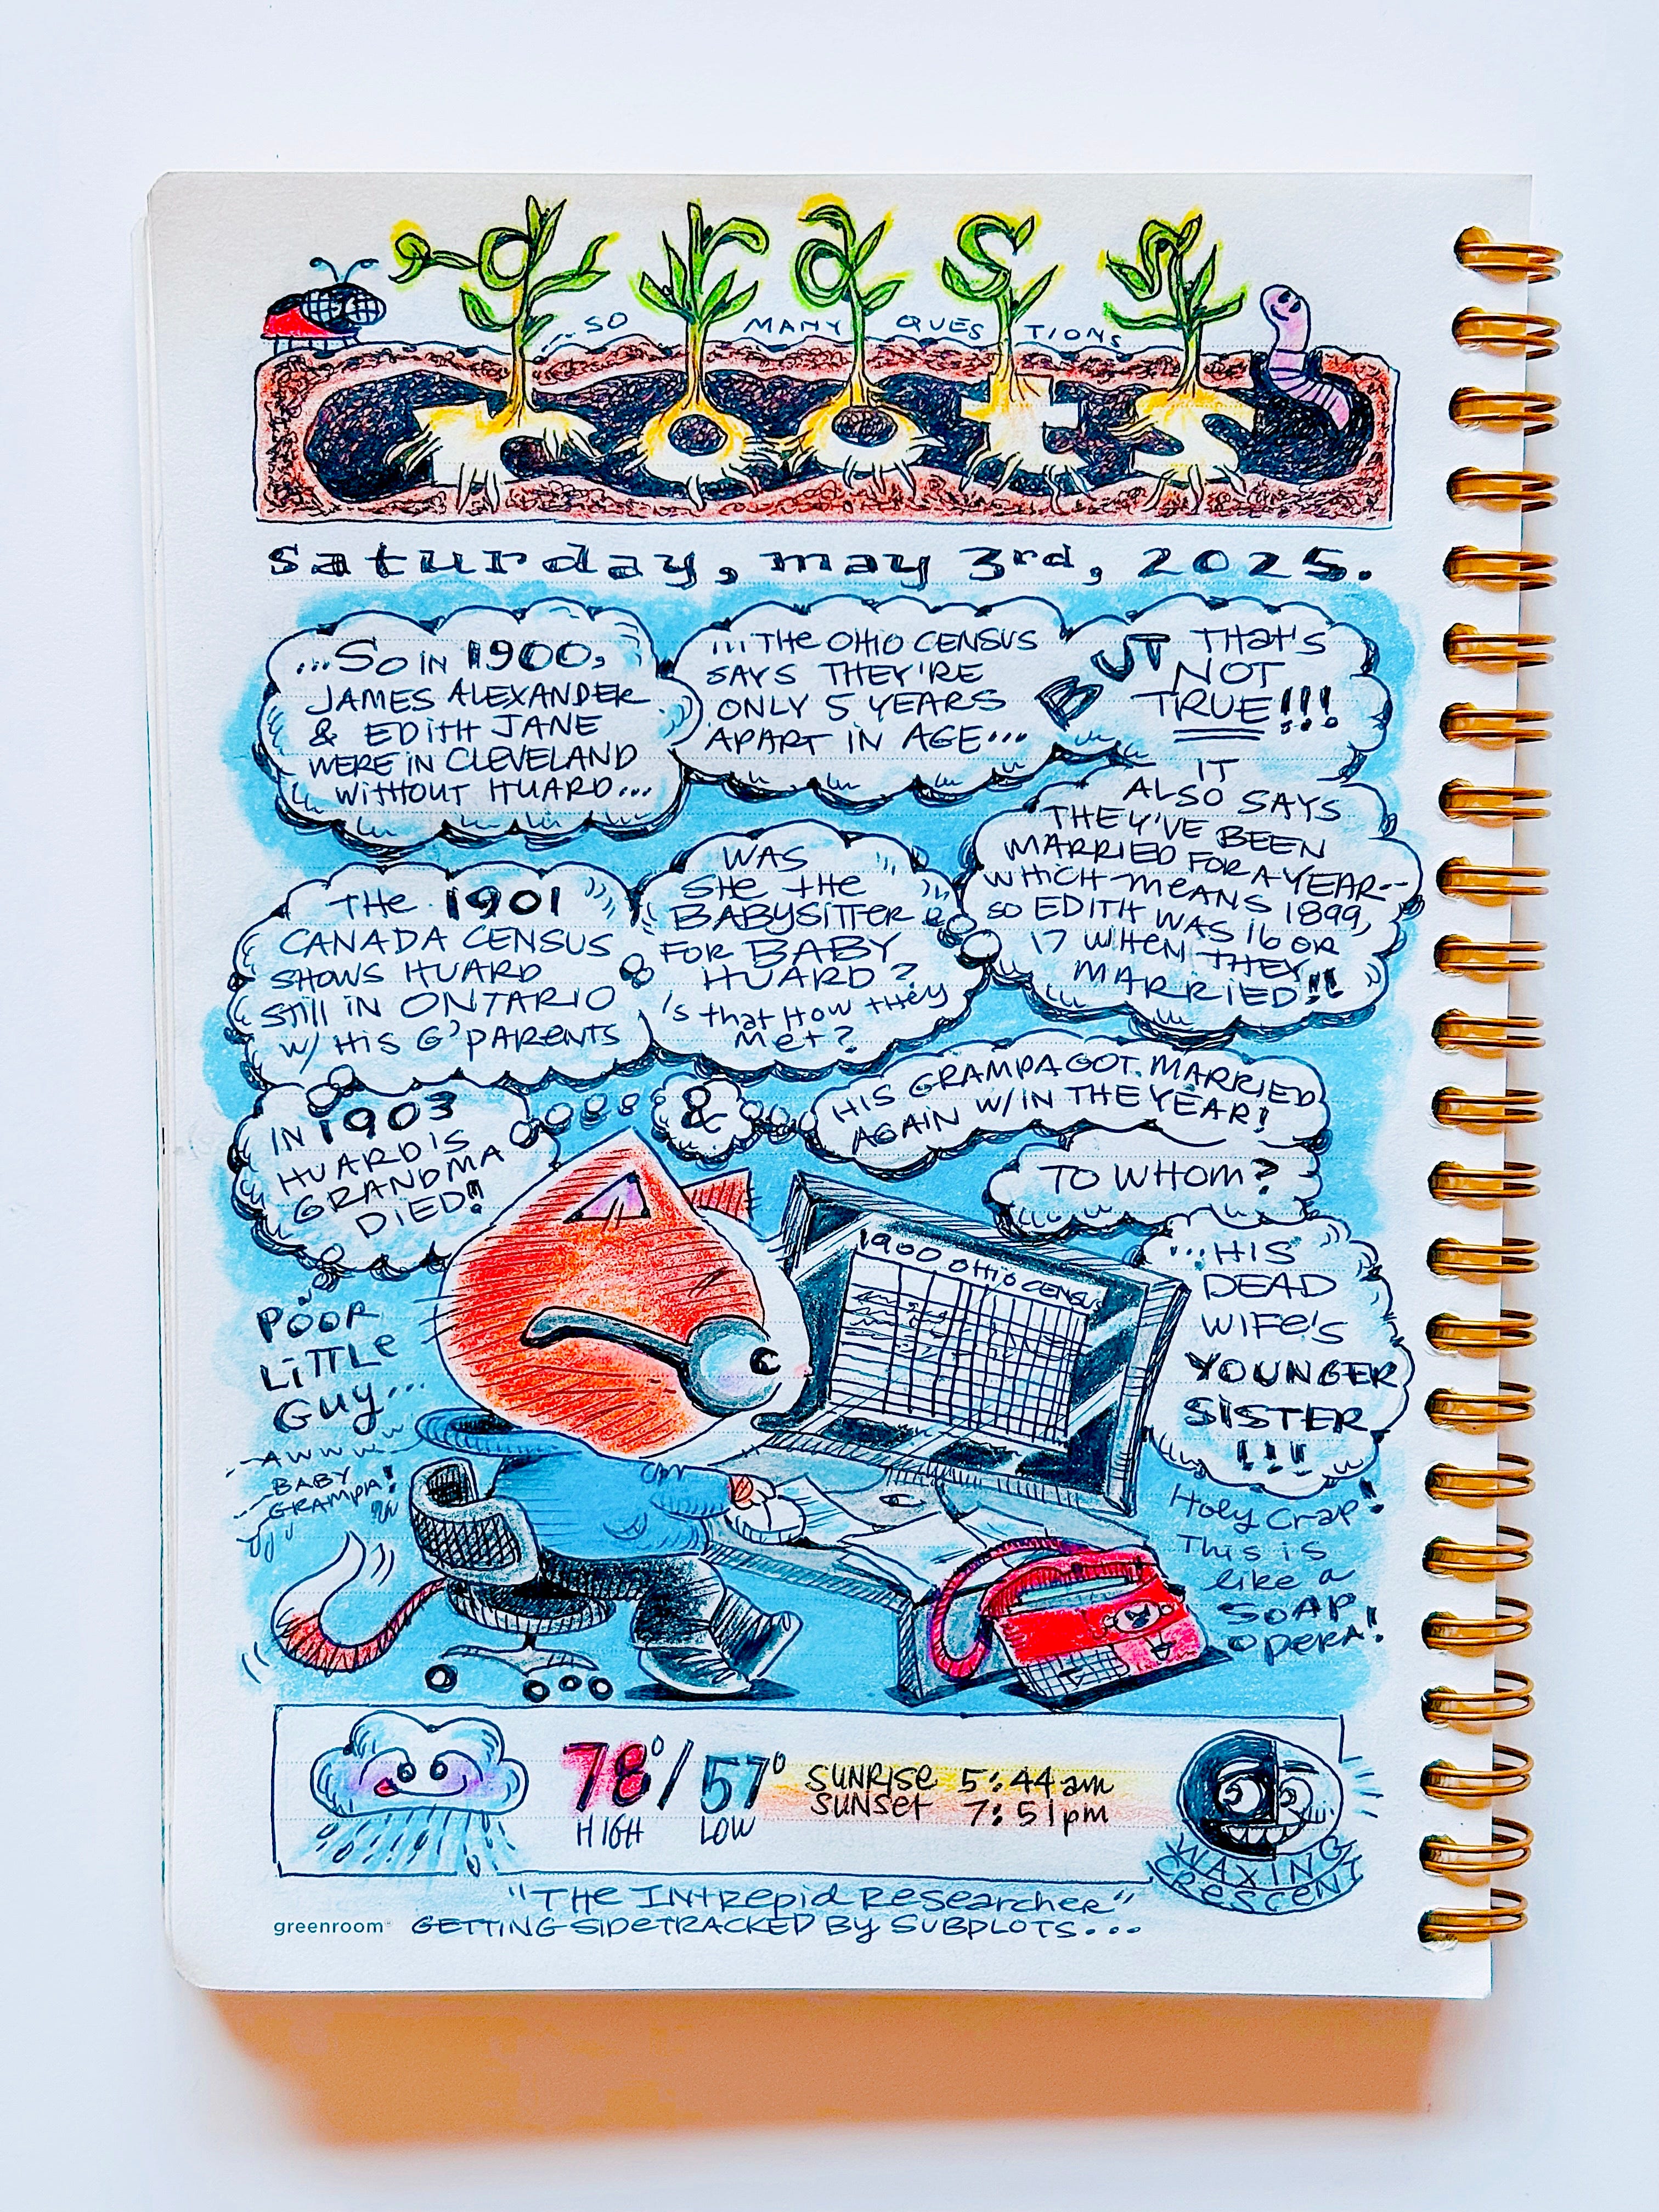 grassy
...SO MANY QUESTIONS
roots
saturday, may 3rd, 2025.
...So in 1900,
JAMES ALEXANDER
& EDITH JANE
WERE IN CLEVELAND
WITHOUT HUARD...
...THE OHIO CENSUS
SAYS THEY'RE
ONLY 5 YEARS
APART IN AGE...
BUT THAT'S
NOT
TRUE!!!
IT
ALSO SAYS
THEY'VE BEEN
MARRIED FOR A YEAR--
WHICH MEANS 1899,
SO EDITH WAS 16 OR
17 WHEN THEY
MARRIED!!
WAS
SHE THE
BABYSITTER
FOR BABY
HUARD?
is that how they
met?
THE 1901
CANADA CENSUS
SHOWS HUARD
still in ONTARIO
w/ HIS G'PARENTS
IN 1903
HUARD'S
GRANDMA
DIED!!
&
HIS GRAMPA GOT MARRIED
AGAIN W/IN THE YEAR!
TO WHOM?
...HIS
DEAD
WIFE'S
YOUNGER
SISTER
!!!
POOR
LITTLE
GUY...
AWWWW
BABY
GRAMPA!
1900 OHIO CENSUS
Holy Crap!
This is
like a
SOAP
OPERA!
78°/57°
HIGH LOW
SUNRISE 5:44am
SUNSET 7:51pm
WAXING
CRESCENT
"THE INTREPID RESEARCHER"
greenroom
GETTING SIDETRACKED BY SUBPLOTS...